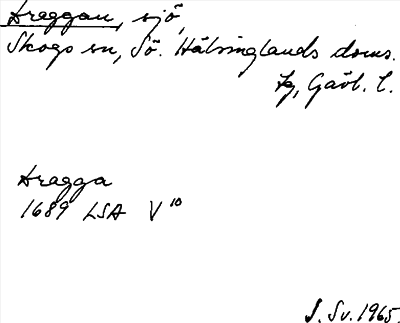 Draggan, sjö,
Skogs sn, Sö. Hälsinglands doms.
tg, Gävl. l.
Dragga
1689 LSA V 10
J. Sv. 1965.